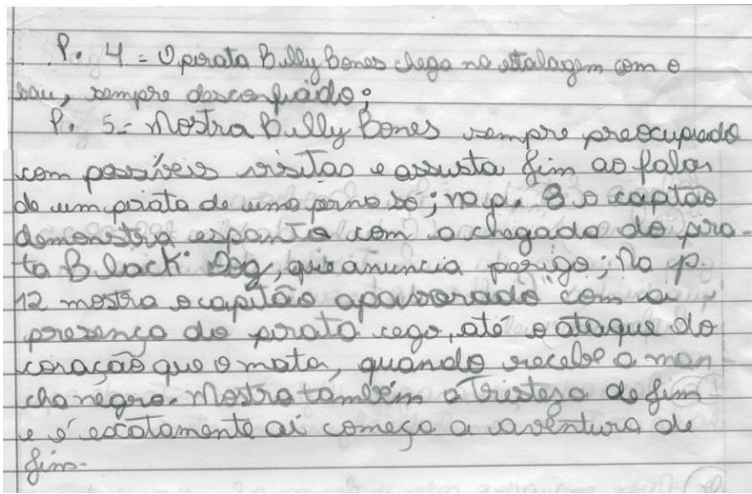 P. 4 - O pirata Billy Bones chega na estalagem com o
bau, sempre desconfiado;
P. 5 - Mostra Billy Bones sempre preocupado
com possíveis visitas e assusta Jim ao falar
de um pirata de uma perna só; na p. 8 o capitão
demonstra espanto com a chegada do pira-
ta Black Dog, que anuncia perigo; Na p.
12 mostra o capitão apavorado com a
presença do pirata cego, até o ataque do
coração que o mata, quando recebe a man
cha negra. Mostra também a tristeza de Jim
e é exatamente aí começa a aventura de
Jim.